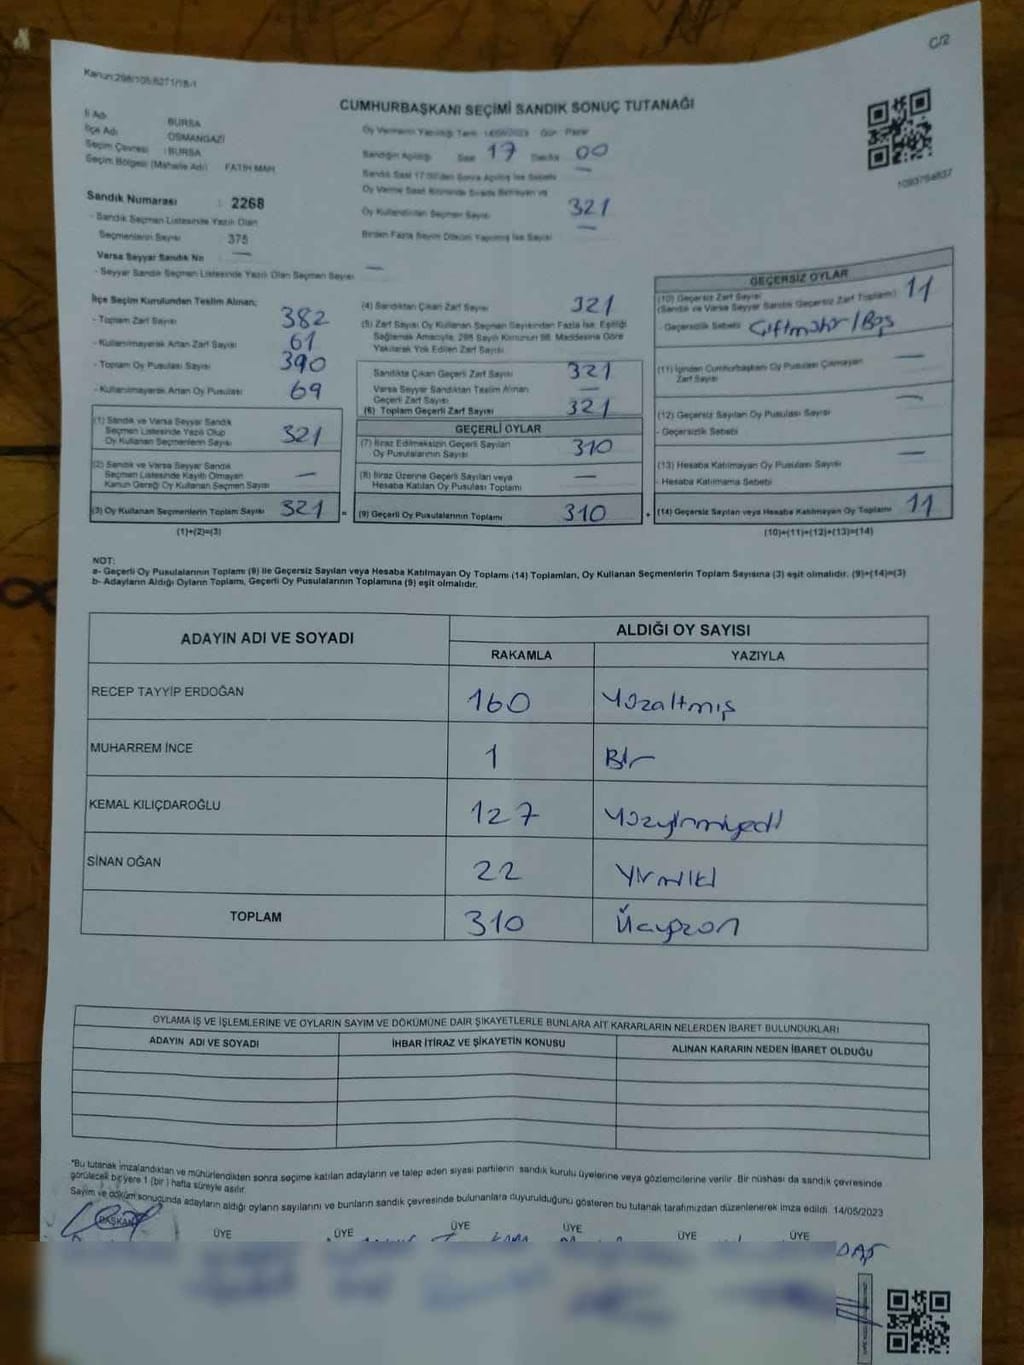 C/2
Kanun:298/105;6271/18-1
CUMHURBAŞKANI SEÇİMİ SANDIK SONUÇ TUTANAĞI
İl Adı BURSA
İlçe Adı OSMANGAZİ
Seçim Çevresi : BURSA
Seçim Bölgesi (Mahalle Adı) FATİH MAH
Sandık Numarası : 2268
- Sandık Seçmen Listesinde Yazılı Olan
Seçmenlerin Sayısı 375
Varsa Seyyar Sandık No —
- Seyyar Sandık Seçmen Listesinde Yazılı Olan Seçmen Sayısı —
Oy Vermenin Yapıldığı Tarih 14/05/2023 Gün Pazar
Sandığın Açıldığı Saat 17 Dakika 00
Sandık Saat 17.00'den Sonra Açılmış İse Sebebi —
Oy Verme Saati Bitiminde Sırada Bekleyen ve
Oy Kullandırılan Seçmen Sayısı 321
Birden Fazla Sayım Döküm Yapılmış İse Sayısı —
1093754837
İlçe Seçim Kurulundan Teslim Alınan;
- Toplam Zarf Sayısı 382
- Kullanılmayarak Artan Zarf Sayısı 61
- Toplam Oy Pusulası Sayısı 390
- Kullanılmayarak Artan Oy Pusulası 69
(1) Sandık ve Varsa Seyyar Sandık
Seçmen Listesinde Yazılı Olup
Oy Kullanan Seçmenlerin Sayısı 321
(2) Sandık ve Varsa Seyyar Sandık
Seçmen Listesinde Kayıtlı Olmayan
Kanun Gereği Oy Kullanan Seçmen Sayısı —
(3) Oy Kullanan Seçmenlerin Toplam Sayısı 321 =
(1)+(2)=(3)
(4) Sandıktan Çıkan Zarf Sayısı 321
(5) Zarf Sayısı Oy Kullanan Seçmen Sayısından Fazla İse, Eşitliği
Sağlamak Amacıyla, 298 Sayılı Kanunun 98. Maddesine Göre
Yakılarak Yok Edilen Zarf Sayısı
Sandıkta Çıkan Geçerli Zarf Sayısı 321
Varsa Seyyar Sandıktan Teslim Alınan
Geçerli Zarf Sayısı —
(6) Toplam Geçerli Zarf Sayısı 321
GEÇERLİ OYLAR
(7) İtiraz Edilmeksizin Geçerli Sayılan
Oy Pusulalarının Sayısı 310
(8) İtiraz Üzerine Geçerli Sayılan veya
Hesaba Katılan Oy Pusulası Toplamı —
(9) Geçerli Oy Pusulalarının Toplamı 310 +
GEÇERSİZ OYLAR
(10) Geçersiz Zarf Sayısı
(Sandık ve Varsa Seyyar Sandık Geçersiz Zarf Toplamı) 11
- Geçersizlik Sebebi Çiftmühür/Boş
(11) İçinden Cumhurbaşkanı Oy Pusulası Çıkmayan
Zarf Sayısı —
(12) Geçersiz Sayılan Oy Pusulası Sayısı —
- Geçersizlik Sebebi
(13) Hesaba Katılmayan Oy Pusulası Sayısı —
- Hesaba Katılmama Sebebi
(14) Geçersiz Sayılan veya Hesaba Katılmayan Oy Toplamı 11
(10)+(11)+(12)+(13)=(14)
NOT:
a- Geçerli Oy Pusulalarının Toplamı (9) ile Geçersiz Sayılan veya Hesaba Katılmayan Oy Toplamı (14) Toplamları, Oy Kullanan Seçmenlerin Toplam Sayısına (3) eşit olmalıdır. (9)+(14)=(3)
b- Adayların Aldığı Oyların Toplamı, Geçerli Oy Pusulalarının Toplamına (9) eşit olmalıdır.
ADAYIN ADI VE SOYADI ALDIĞI OY SAYISI
RAKAMLA YAZIYLA
RECEP TAYYİP ERDOĞAN 160 Yüzaltmış
MUHARREM İNCE 1 Bir
KEMAL KILIÇDAROĞLU 127 Yüzyirmiyedi
SİNAN OĞAN 22 Yirmiiki
TOPLAM 310 Üçyüzon
OYLAMA İŞ VE İŞLEMLERİNE VE OYLARIN SAYIM VE DÖKÜMÜNE DAİR ŞİKAYETLERLE BUNLARA AİT KARARLARIN NELERDEN İBARET BULUNDUKLARI
ADAYIN ADI VE SOYADI İHBAR İTİRAZ VE ŞİKAYETİN KONUSU ALINAN KARARIN NEDEN İBARET OLDUĞU
*Bu tutanak imzalandıktan ve mühürlendikten sonra seçime katılan adayların ve talep eden siyasi partilerin sandık kurulu üyelerine veya gözlemcilerine verilir. Bir nüshası da sandık çevresinde
görülecek bir yere 1 (bir ) hafta süreyle asılır.
Sayım ve döküm sonucunda adayların aldığı oyların sayılarını ve bunların sandık çevresinde bulunanlara duyurulduğunu gösteren bu tutanak tarafımızdan düzenlenerek imza edildi. 14/05/2023
BAŞKAN ÜYE ÜYE ÜYE ÜYE ÜYE ÜYE